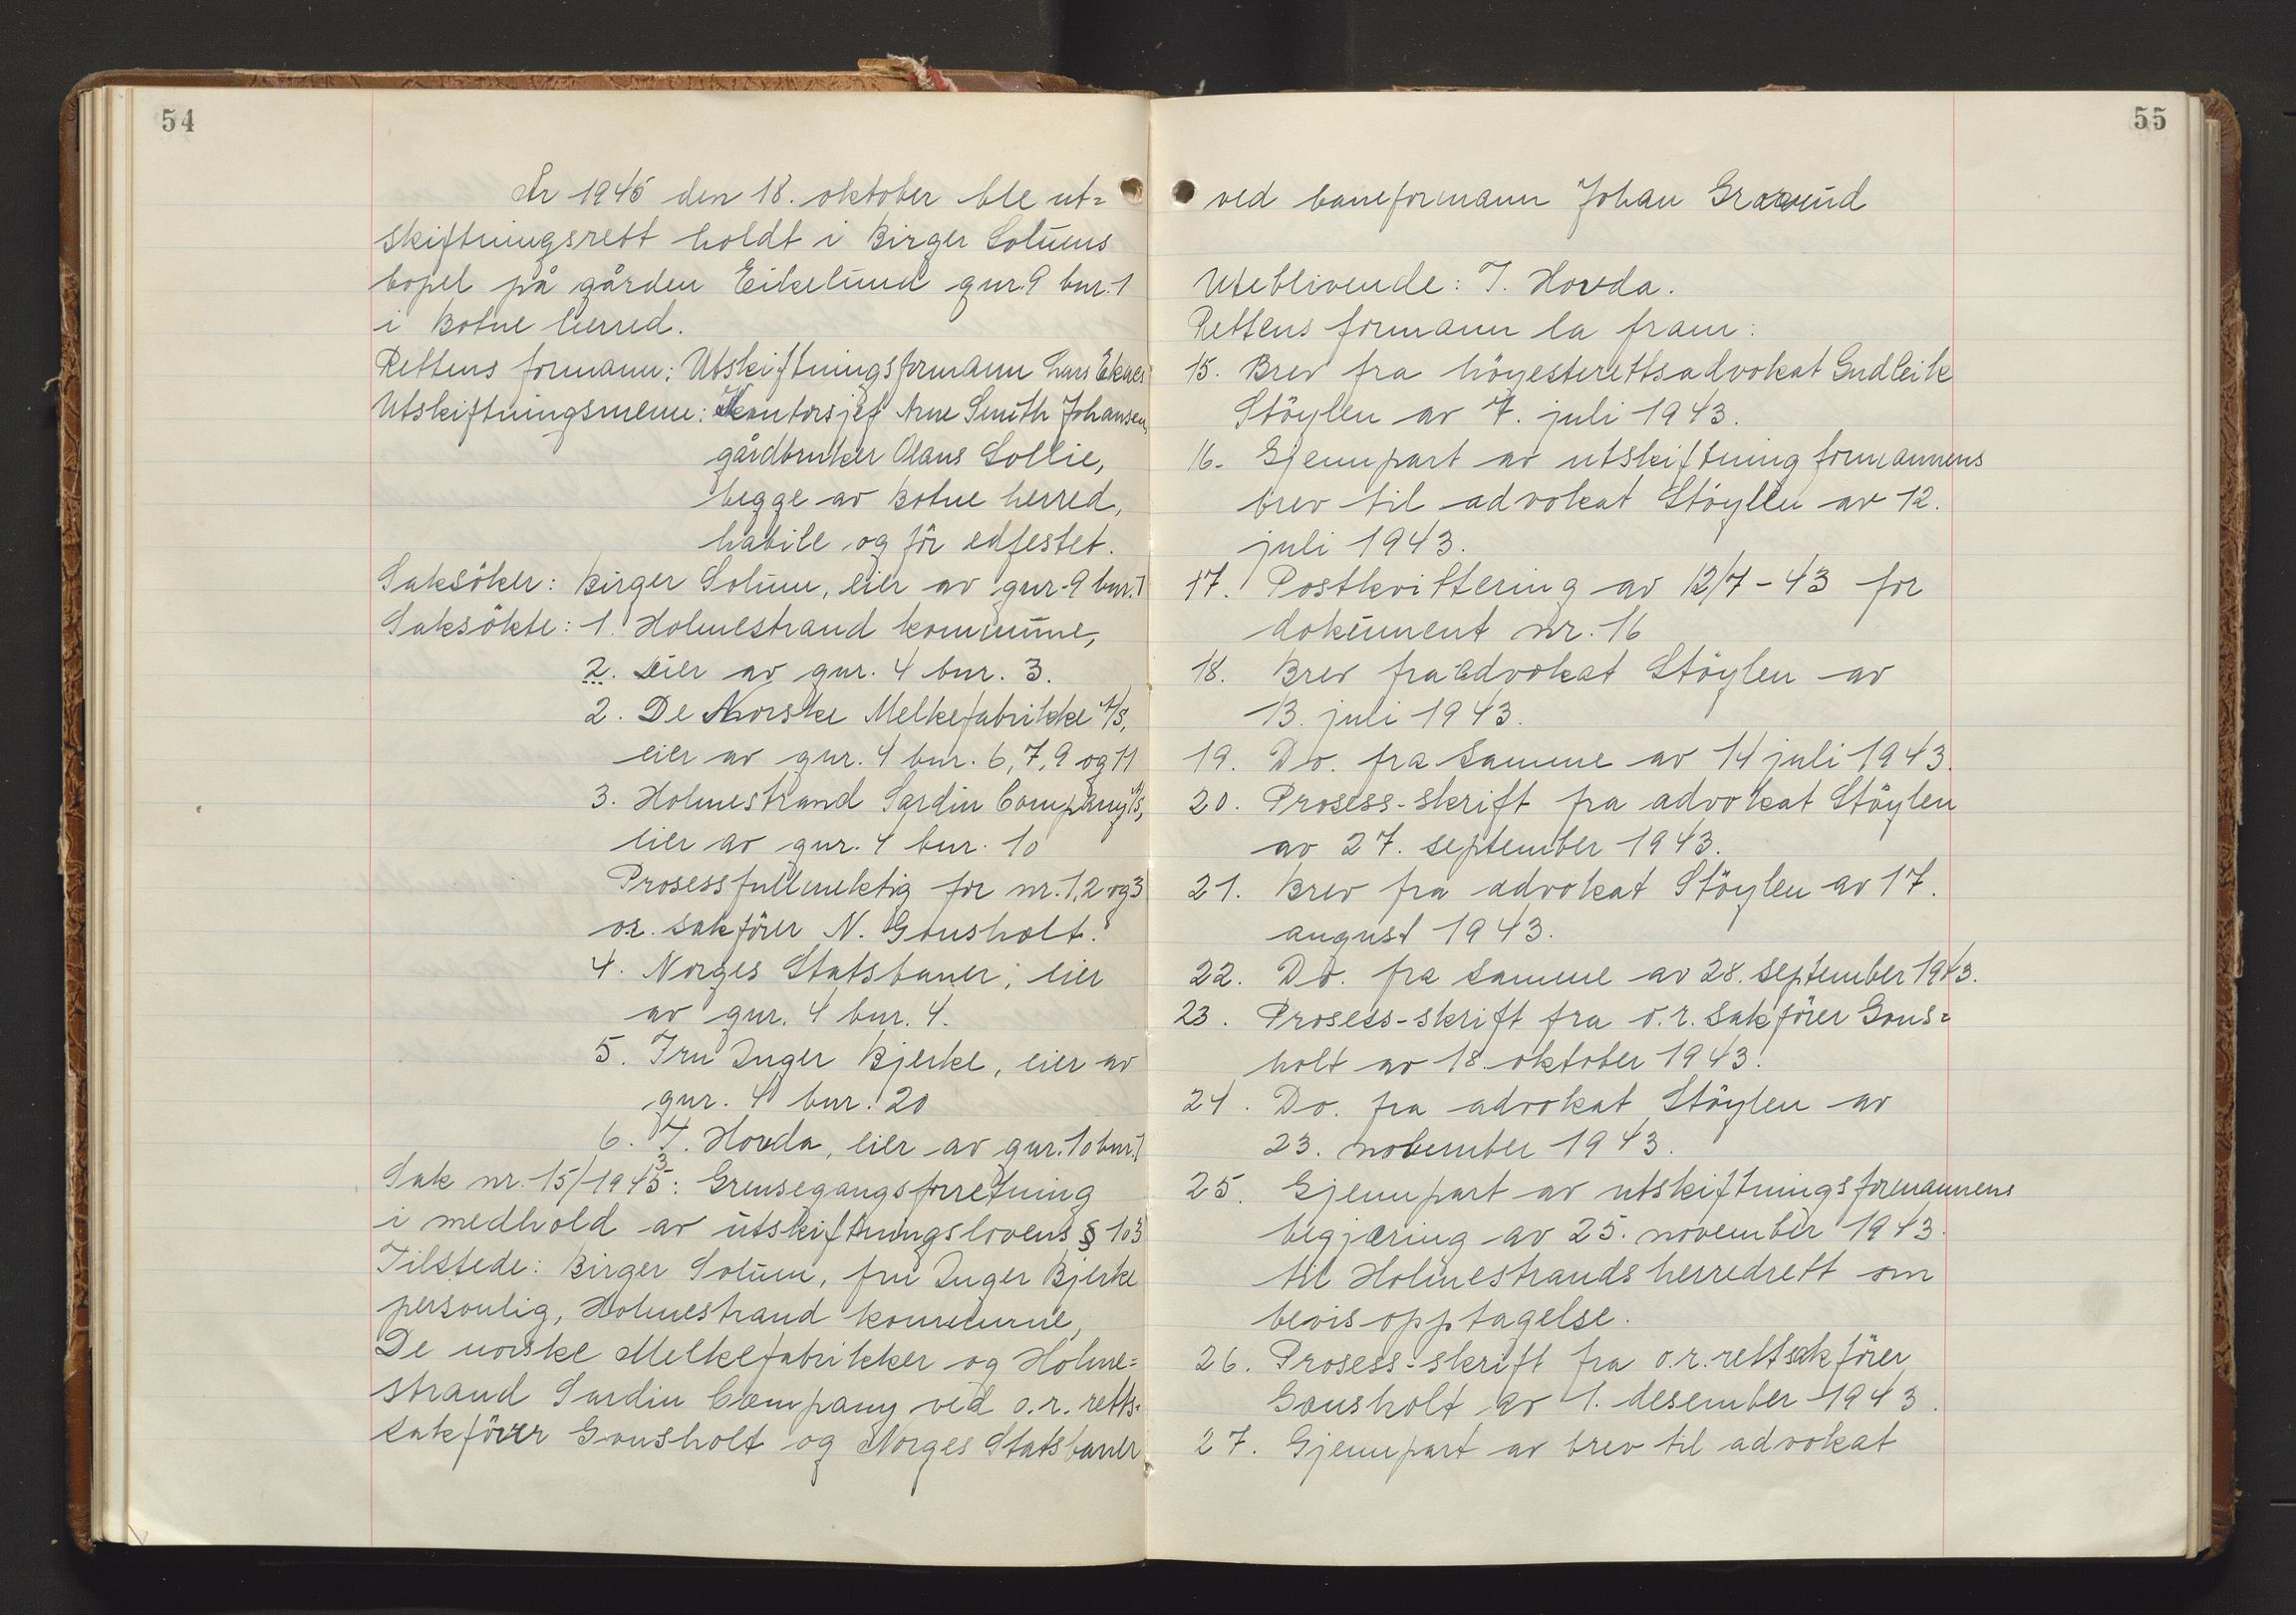 54
År 1945 den 18. oktober ble ut=
skiftningsrett holdt i Birger Solums
bopel på gården Eikelund gnr. 9 bnr. 1
i Botne herred.
Rettens formann: Utskiftningsformann Lars Eknes
Utskiftningsmenn: Kontorsjef Arne Smith Johansen,
gårdbruker Olaus Sollie,
begge av Botne herred,
habile og för edfestet.
Saksöker: Birger Solum, eier av gnr. 9 bnr. 1
Saksökte: 1. Holmestrand kommune,
2. Eier av gnr. 4 bnr. 3.
2. De Norske Melkefabrikke A/S,
eier av gnr. 4 bnr. 6, 7, 9 og 11
3. Holmestrand Sardin Company A/S,
eier av gnr. 4 bnr. 10
Prosessfullmektig for nr. 1, 2 og 3
o.r. sakförer N. Gousholt.
4. Norges Statsbaner, eier
av gnr. 4 bnr. 4.
5. Fru Inger Bjerke, eier av
gnr. 4 bnr. 20
6. T. Hovda, eier av gnr. 10 bnr. 1
Sak nr. 15/1943: Grensegangsforretning
i medhold av utskiftningslovens § 103
Tilstede: Birger Solum, fru Inger Bjerke
personlig, Holmestrand kommune,
De norske Melkefabrikker og Holme=
strand Sardin Company ved o.r. retts=
sakförer Gousholt og Norges Statsbaner
55
ved baneformann Johan
Uteblivende: T. Hovda.
Rettens formann la fram:
15. Brev fra höyesterettsadvokat Gudleik
Stöylen av 7. juli 1943.
16. Gjennpart av utskiftning formannens
brev til advokat Stöylen av 12.
juli 1943.
17. Postkvittering av 12/7-43 for
dokument nr. 16
18. Brev fra advokat Stöylen av
13. juli 1943.
19. Do. fra samme av 14 juli 1943.
20. Prosess-skrift fra advokat Stöylen
av 27. september 1943.
21. Brev fra advokat Stöylen av 17.
august 1943.
22. Do. fra samme av 28. september 1943.
23. Prosess-skrift fra o.r. sakförer Gous=
holt av 18. oktober 1943.
24. Do. fra advokat Stöylen av
23. november 1943.
25. Gjennpart av utskiftningsformannens
begjæring av 25. november 1943.
til Holmestrands herredrett om
bevisopptagelse.
26. Prosess-skrift fra o.r. rettsakförer
Gousholt av 1. desember 1943.
27. Gjennpart av brev til advokat